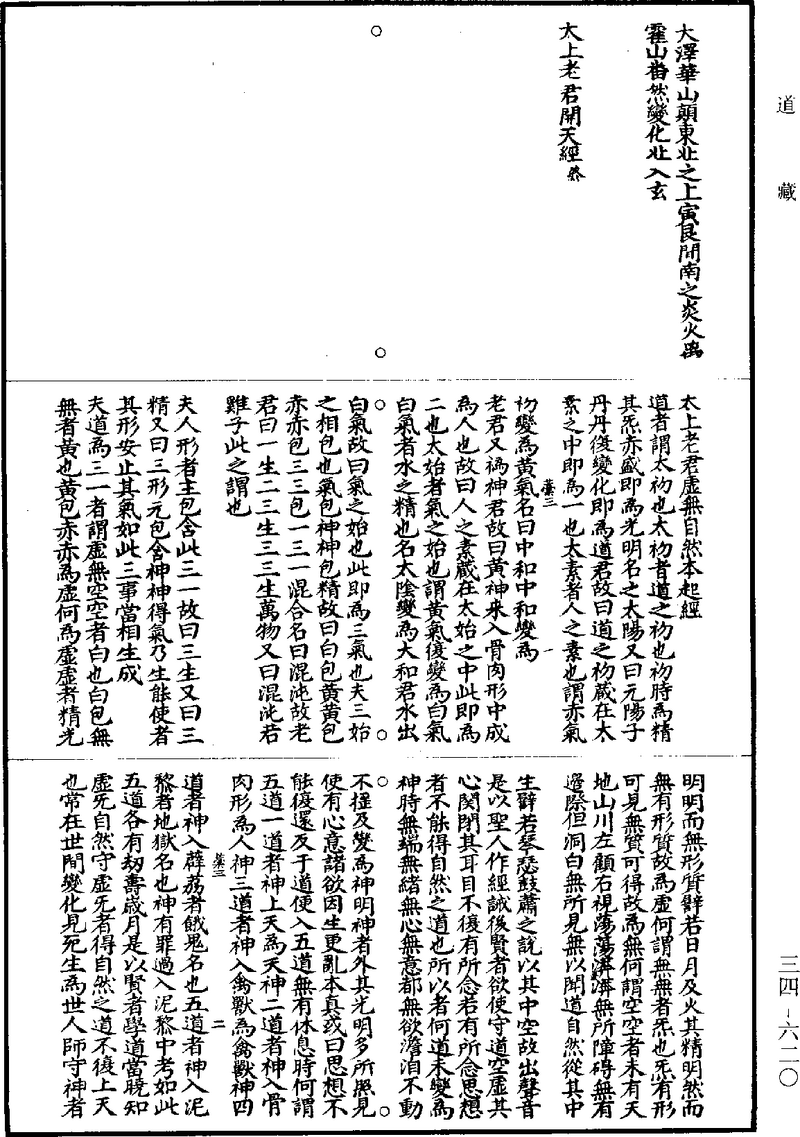 道藏
大澤華山顛東北之上寅艮間南之炎火嵎
霍山畨然變化北入玄
太上老君開天經 終
太上老君虛無自然本起經
道者謂太初也太初者道之初也初時為精
其炁赤盛即為光明名之太陽又曰元陽子
丹丹復變化即為道君故曰道之初藏在太
素之中即為一也太素者人之素也謂赤氣
業三 一
初變為黃氣名曰中和中和變為
老君又為神君故曰黃神來入骨肉形中成
為人也故曰人之素藏在太始之中此即為
二也太始者氣之始也謂黃氣復變為白氣
白氣者水之精也名太陰變為太和君水出
白氣故曰氣之始也此即為三氣也夫三始
之相包也氣包神神包精故曰白包黃黃包
赤赤包三三包一三一混合名曰混沌故老
君曰一生二二生三三生萬物又曰混沌若
雞子此之謂也
夫人形者主包含此三一故曰三生又曰三
精又曰三形元包含神神得氣乃生能使者
其形安止其氣如此三事當相生成
夫道為三一者謂虛無空空者白也白包無
無者黃也黃包赤赤為虛何為虛虛者精光
明明而無形質譬若日月及火其精明然而
無有形質故為虛何謂無無者炁也炁有形
可見無質可得故為無何謂空空者未有天
地山川左顧右視蕩蕩漭漭無所障碍無有
邊際但洞白無所見無以聞道自然從其中
生譬若琴瑟鼓簫之說以其中空故出聲音
是以聖人作經誡後賢者欲使守道空虛其
心関閉其耳目不復有所念若有所念思想
者不能得自然之道也所以者何道未變為
神時無端無緒無心無意都無欲澹泊不動
不搖及變為神明神者外其光明多所照見
使有心意諸欲因生更亂本真或曰思想不
能復還反于道便入五道無有休息時何謂
五道一道者神上天為天神二道者神入骨
肉形為人神三道者神入禽獸為禽獸神四
業三 二
道者神入薜荔薜荔者餓鬼名也五道者神入泥
黎者地獄名也神有罪過入泥黎中考如此
五道各有劫壽歲月是以賢者學道當曉知
虛无自然守虛无者得自然之道不復上天
也常在世間變化見死生為世人師守神者
三四-六二〇